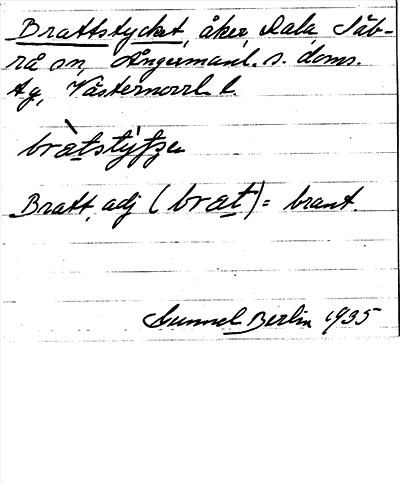 Brattstycket, åker, Dala Säb-
rå sn, Ångermanl. s. doms.
tg, Västernorrl. l.
Bratt, adj (brat) = brant.
Gunnel Berlin 1935